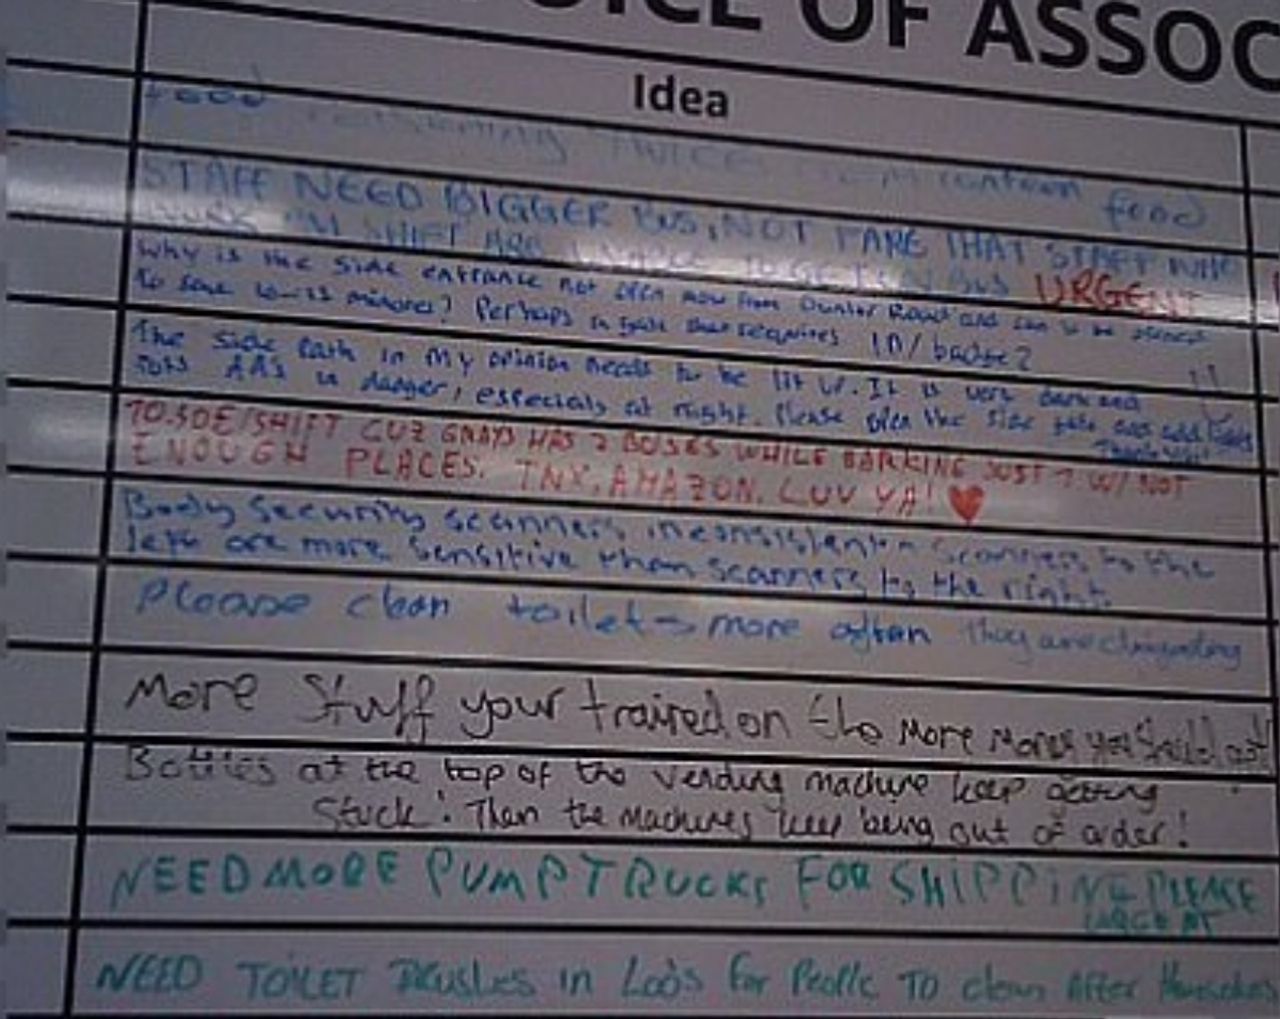 OICE OF ASSOC
Idea
Food
TWICE canteen food
STAFF NEED BIGGER BUS, NOT FARE THAT STAFF WHO
WORK SHIFT ARE BUS URGENT
Why is the side entrance not open now from Dunlop Road and can it be opened
to save 10-15 minutes? Perhaps a gate that requires ID/badge?
The side path in my opinion needs to be lit up. It is very dark and
puts AA's in danger, especialy at night. Please open the side gate and add lights
Thank you!
10.50E/SHIFT CUZ GRAYS HAS 2 BUSES WHILE BARKING JUST 1 W/ NOT
ENOUGH PLACES. TNX, AMAZON. LUV YA! ♥
Body security scanners inconsistent - scanners to the
left are more sensitive than scanners to the right.
Please clean toilets more often They are disgusting
More Stuff your trained on the More Money you should get
Bottles at the top of the vending machine keep getting
Stuck! Then the machines keep being out of order!
NEED MORE PUMP TRUCKS FOR SHIPPING PLEASE
NEED TOILET Brushes in Loo's For People To clean After themselves